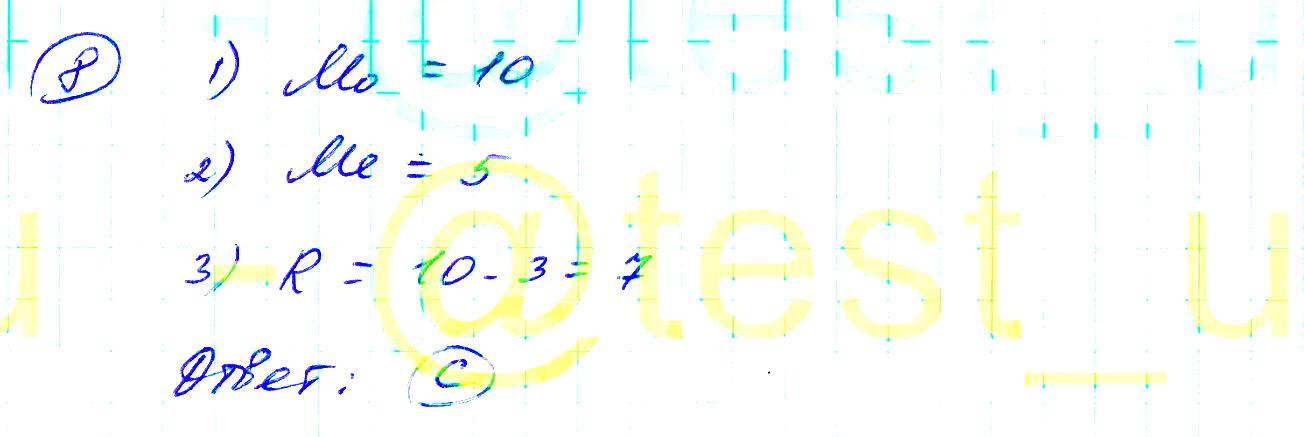 8 1) Mo = 10
2) Me = 5
3) R = 10 - 3 = 7
Ответ: C
@test_u